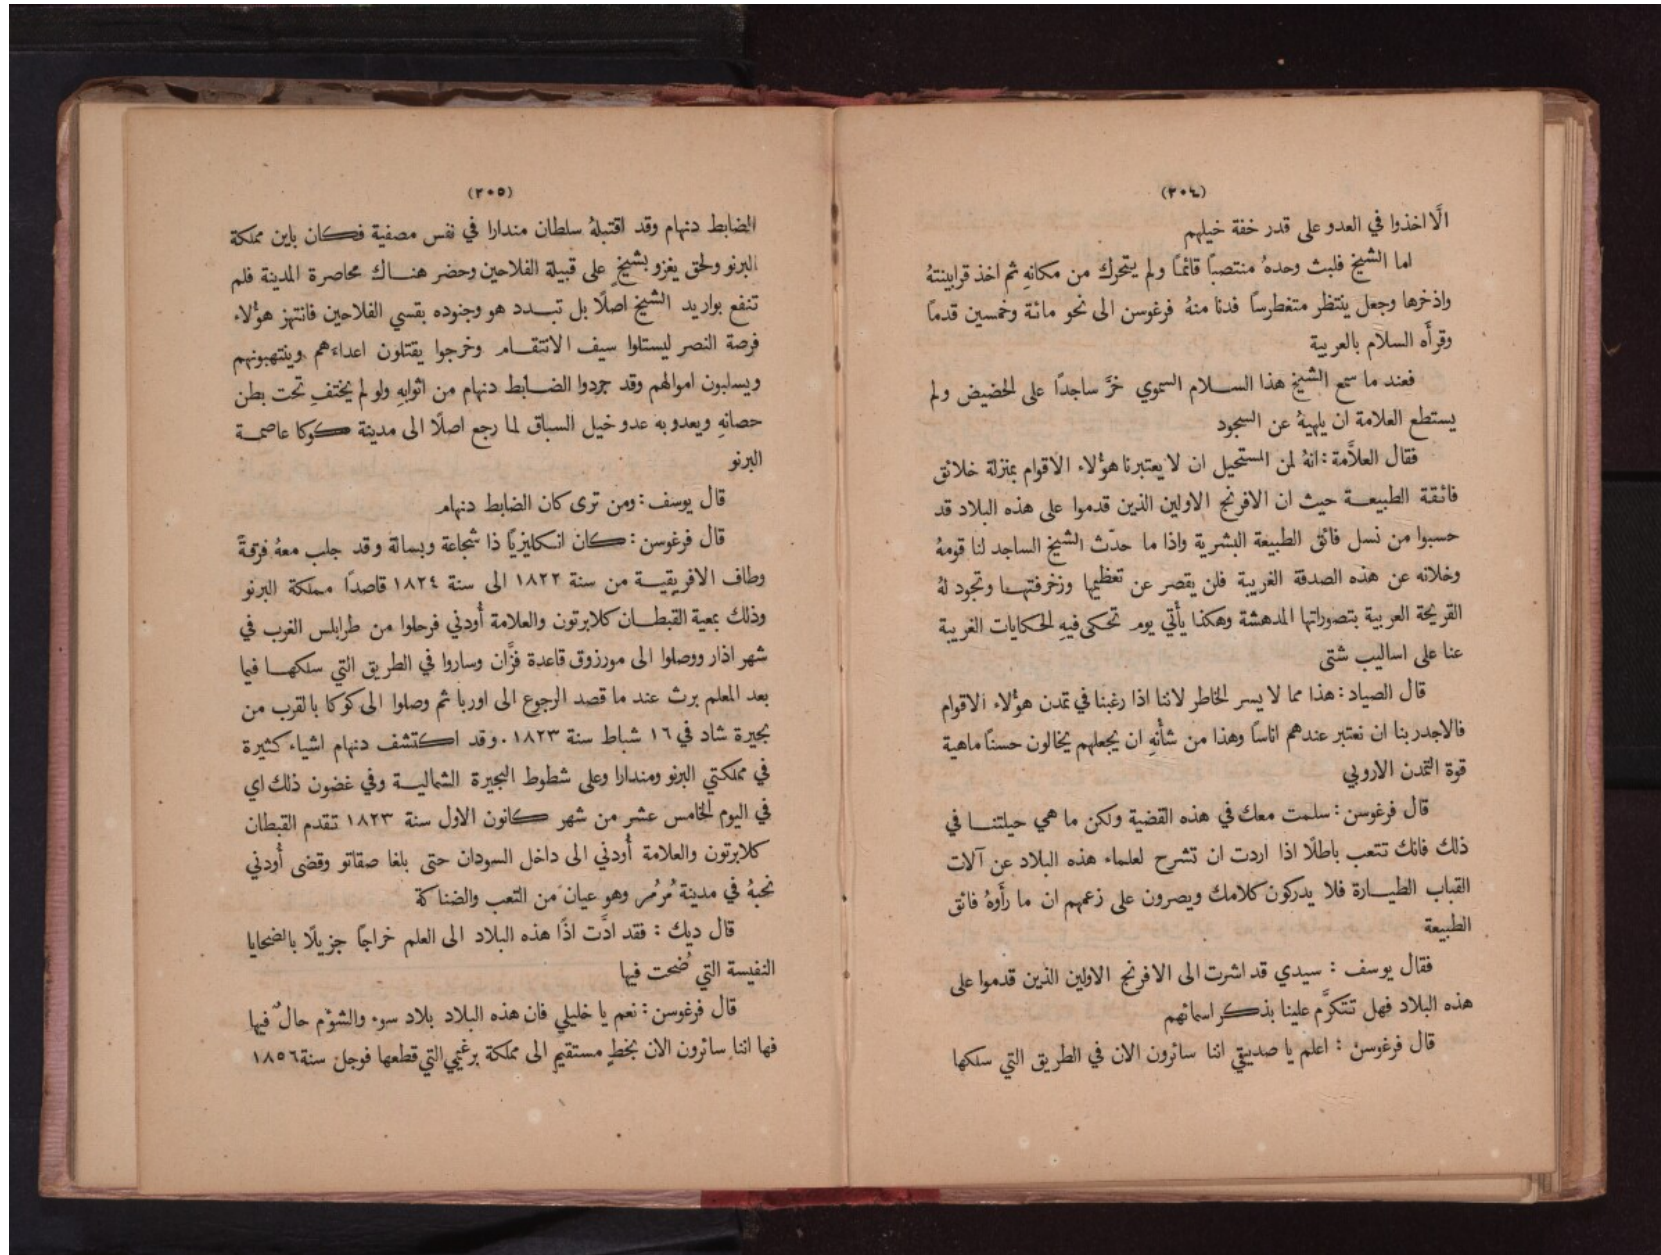 (٢٠٤)
الَّا اخذوا في العدو على قدر خفة خيلهم
اما الشيخ فلبث وحدهُ منتصبًا قائمًا ولم يتحرك من مكانهِ ثم اخذ قرابينتهُ
واذخرها وجعل ينتظر متغطرسًا فدنا منهُ فرغوسن الى نحو مائة وخمسين قدمًا
وقرأَه السلام بالعربية
فعند ما سمع الشيخ هذا السلام السموي خرَّ ساجدًا على الحضيض ولم
يستطع العلامة ان يلهيهُ عن السجود
فقال العلاَّمة : انهُ لمن المستحيل ان لا يعتبرنا هؤلاء الاقوام بمنزلة خلائق
فائقة الطبيعة حيث ان الافرنج الاولين الذين قدموا على هذه البلاد قد
حسبوا من نسل فائق الطبيعة البشرية واذا ما حدّث الشيخ الساجد لنا قومهُ
وخلانه عن هذه الصدفة الغريبة فلن يقصر عن تعظيمها وزخرفتها وتجود لهُ
القريحة العربية بتصوراتها المدهشة وهكذا يأتي يوم تحكى فيهِ الحكايات الغريبة
عنا على اساليب شتى
قال الصياد : هذا مما لا يسر الخاطر لاننا اذا رغبنا في تمدن هؤلاء الاقوام
فالاجدر بنا ان نعتبر عندهم اناسًا وهذا من شأنهِ ان يجعلهم يخالون حسنًا ماهية
قوة التمدن الاروبي
قال فرغوسن : سلمت معك في هذه القضية ولكن ما هي حيلتنا في
ذلك فانك تتعب باطلًا اذا اردت ان تشرح لعلماء هذه البلاد عن آلات
القباب الطيارة فلا يدركون كلامك ويصرون على زعمهم ان ما رأَوهُ فائق
الطبيعة
فقال يوسف : سيدي قد اشرت الى الافرنج الاولين الذين قدموا على
هذه البلاد فهل تتكرَّم علينا بذكر اسمائهم
قال فرغوسن : اعلم يا صديقي اننا سائرون الان في الطريق التي سلكها
(٢٠٥)
الضابط دنهام وقد اقتبلهُ سلطان مندارا في نفس مصفية فكان باين مملكة
البرنو ولحق يغزو بشيخٍ على قبيلة الفلاحين وحضر هناك محاصرة المدينة فلم
تنفع بواريد الشيخ اصلًا بل تبدد هو وجنوده بقسي الفلاحين فانتهز هؤلاء
فرصة النصر ليستلوا سيف الانتقام وخرجوا يقتلون اعداءهم وينتهبونهم
ويسلبون اموالهم وقد جردوا الضابط دنهام من اثوابهِ ولو لم يختفِ تحت بطن
حصانهِ ويعدو به عدو خيل السباق لما رجع اصلًا الى مدينة كوكا عاصمة
البرنو
قال يوسف : ومن ترى كان الضابط دنهام
قال فرغوسن : كان انكليزيًا ذا شجاعة وبسالة وقد جلب معهُ فرقةً
وطاف الافريقية من سنة ١٨٢٢ الى سنة ١٨٢٤ قاصدًا مملكة البرنو
وذلك بمعية القبطان كلابرتون والعلامة أُودني فرحلوا من طرابلس الغرب في
شهر اذار ووصلوا الى مورزوق قاعدة فزَّان وساروا في الطريق التي سلكها فيما
بعد المعلم برث عند ما قصد الرجوع الى اوربا ثم وصلوا الى كوكا بالقرب من
بحيرة شاد في ١٦ شباط سنة ١٨٢٣. وقد اكتشف دنهام اشياء كثيرة
في مملكتي البرنو ومندارا وعلى شطوط البحيرة الشمالية وفي غضون ذلك اي
في اليوم الخامس عشر من شهر كانون الاول سنة ١٨٢٣ تقدم القبطان
كلابرتون والعلامة أُودني الى داخل السودان حتى بلغا صقاتو وقضى أُودني
نحبهُ في مدينة مُرمُر وهو عيان من التعب والضناكة
قال ديك : فقد ادَّت اذًا هذه البلاد الى العلم خراجًا جزيلًا بالضحايا
النفيسة التي ضُحت فيها
قال فرغوسن : نعم يا خليلي فان هذه البلاد بلاد سوء والشؤم حالٌ فيها
فها اننا سائرون الان بخطٍ مستقيمٍ الى مملكة برغيمي التي قطعها فوجل سنة ١٨٥٦